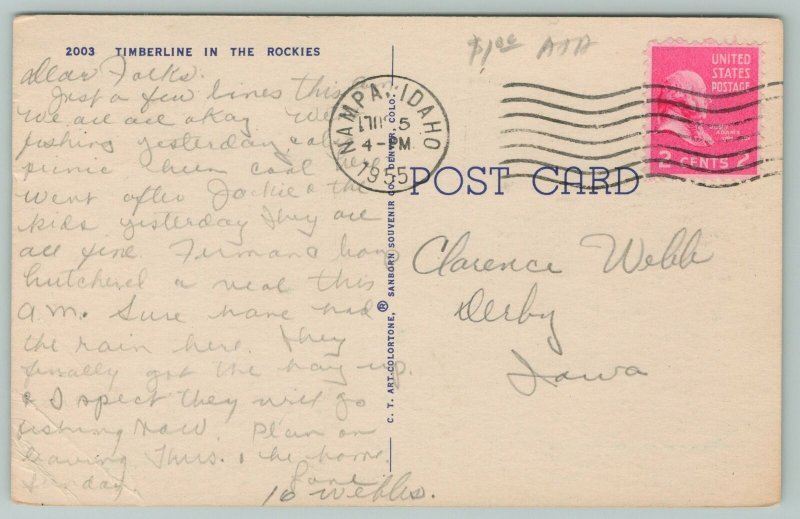 2003 TIMBERLINE IN THE ROCKIES
Dear Folks.
Just a few lines this
We are all okay. We
fishing yesterday
picnic been cool here
went after Jackie & the
kids yesterday They are
all fine. Firman &
butchered a veal this
a.m. Sure have had
the rain here. They
finally got the hay up.
& I spect they will go
fishing now. Plan on
leaving Thurs. & be home
Sunday. Love
16 Webbs.
C. T. ART-COLORTONE, ® SANBORN SOUVENIR CO., DENVER, COLO.
$1.00
NAMPA, IDAHO
5
4-PM
1955
UNITED
STATES
POSTAGE
JOHN
ADAMS
2 CENTS 2
POST CARD
Clarence Webb
Derby
Iowa